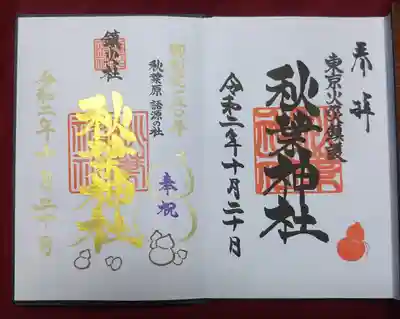 奉拝
東京火災鎮護
秋葉神社
令和二年十月二十日
秋葉原 語源の社
奉祝
鎮火社
秋葉神社
令和二年十月二十日